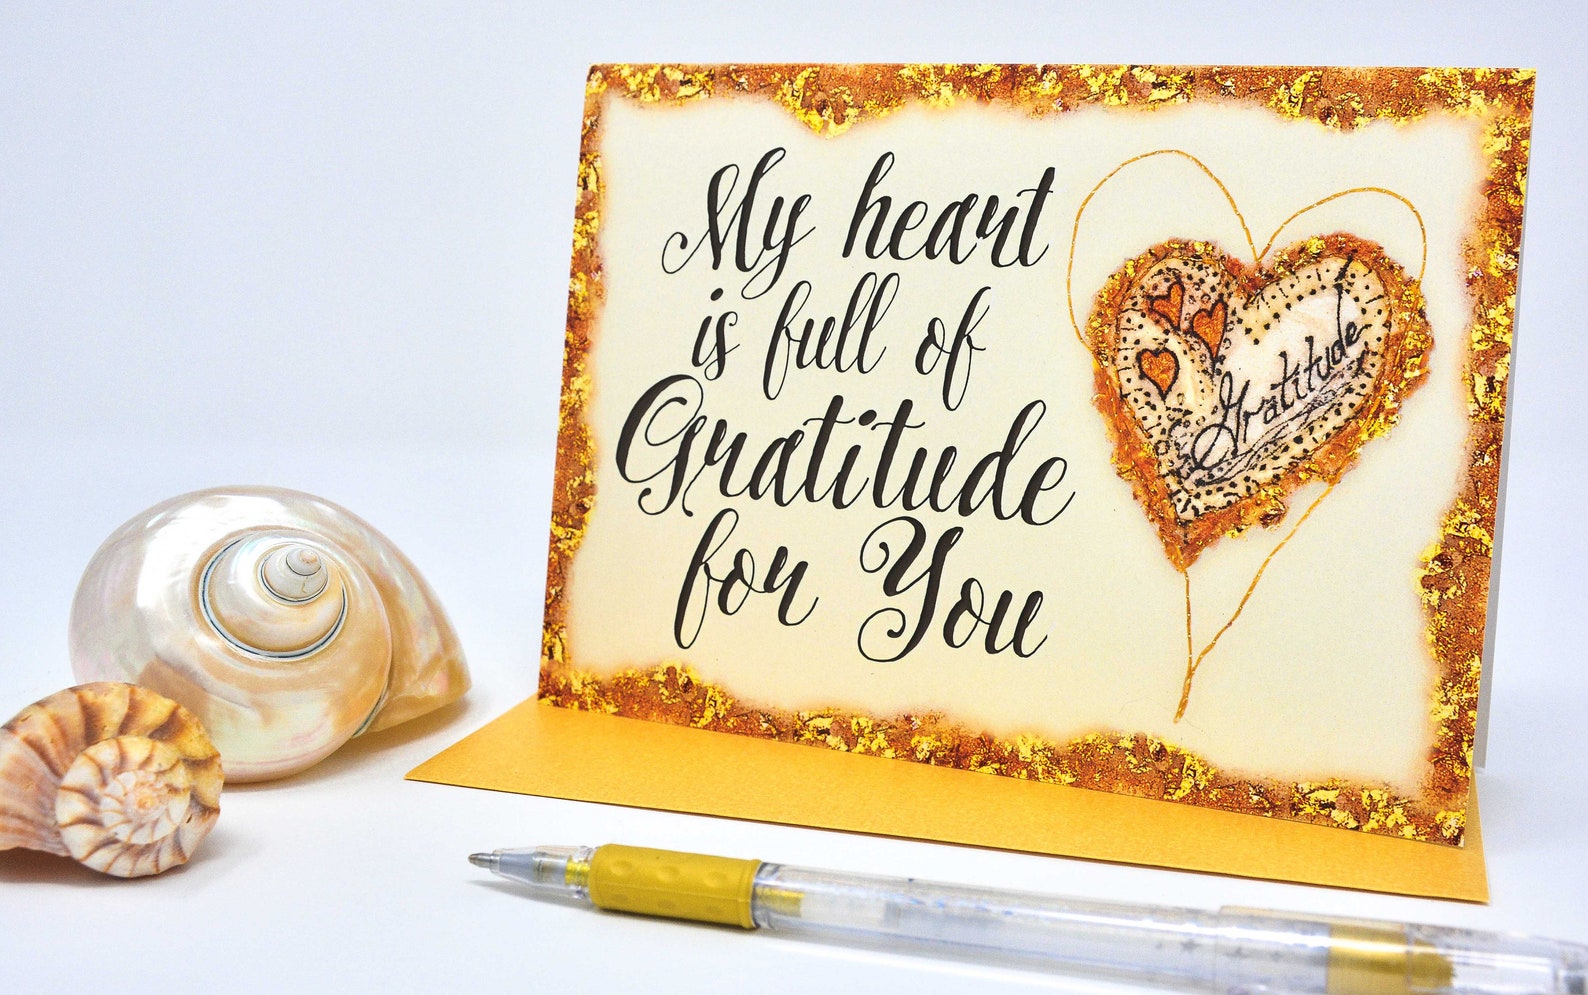 My heart
is full of
Gratitude
for You
Gratitude